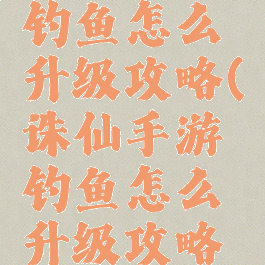 钓鱼怎么
升级攻略(
诛仙手游
钓鱼怎么
升级攻略